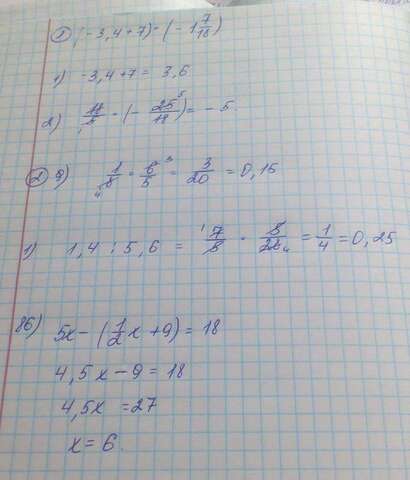 ① (-3,4+7)·(-1 7/18)
1) -3,4+7= 3,6
2) 18/5 · (- 25/18) = - 5.
② 9) 1/8 · 6/5 = 3/20 = 0,15
1) 1,4 : 5,6 = 7/5 · 5/28 = 1/4 = 0,25
86) 5x-(1/2x+9)=18
4,5x-9=18
4,5x =27
x=6.